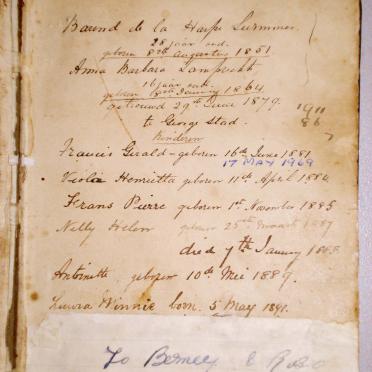 Barend de la Harpe Lummer
28 jaar oud.
geboren 8th Augustus 1851
Anna Barbara Lamprecht
16 jaar oud
geboren January 1864
Getrouwd 29th June 1879.
1911
86
te George Stad.
Kinderen
Francis Gerald - geboren 16th June 1881
17 MAY 1969
Viola Henrietta geboren 11th April 1884
Frans Pierre geboren 1st November 1885
Nelly Helen geboren 25th Maart 1887
died 7th January 1888
Antoinette geboren 10th Mei 1889.
Laura Winnie born. 5 May 1891.
To &